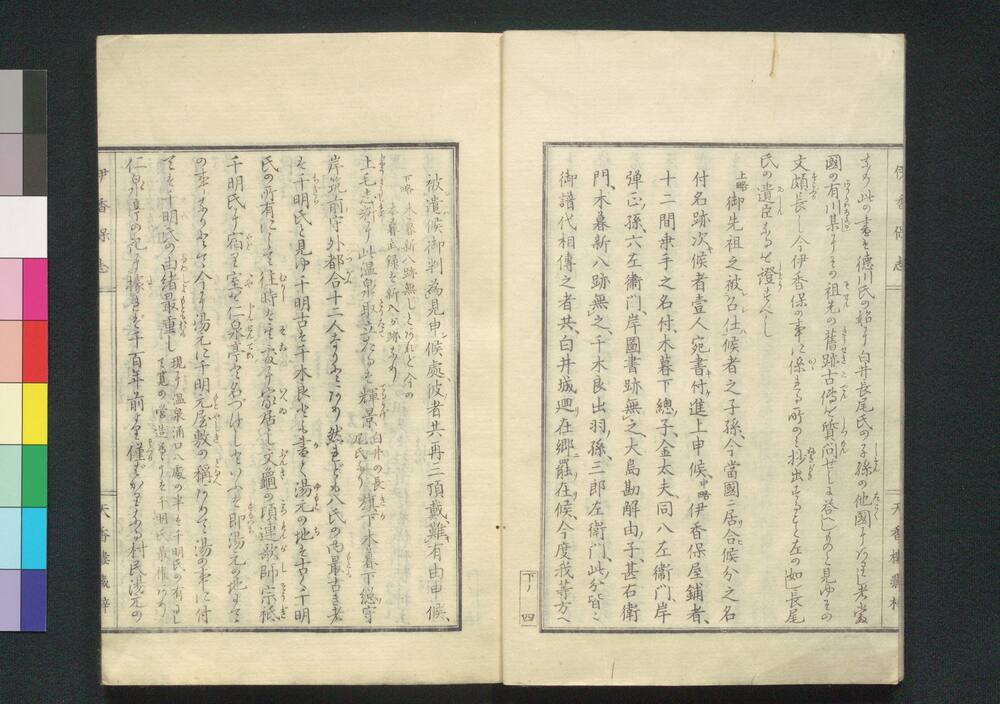 伊香保志
より此の書を徳川氏の始より白井長尾氏の子孫の他國にありし者當
國の有川某よりその祖先の舊跡古傳を質問せしに答へしものと見ゆその
文頗長し今伊香保の事に係る所のミ抄出すること左の如し長尾
氏の遺臣なる證すべし
上略御先祖之被召仕候者之子孫、今當國ニ居合候分之名
付名跡次候者壹人宛書付進上申候、中略伊香保屋鋪者、
十二間乗手之名付、木暮下總子、金太夫、同八左衞門、岸
弾正孫、六左衞門、岸圖書跡無之、大島勘解由子甚右衛
門、木暮新八跡無之、千木良出羽孫三郎左衛門、此分皆々
御譜代相傳之者共、白井城廻在郷罷在候、今度我等方へ
天香樓藏梓
下ノ四
被遣候御判為見申候處、彼者共再三頂戴難有由申候、
下略 木暮新八跡無しとあれと今の
木暮武太夫を新八が跡なり
上毛志料に此温泉取立たるを輝景白井の長尾氏なり旗下木暮下總守
岸筑前守外都合十二人なりとあり然れども八氏の内最古き者
を千明氏と見ゆ千明古を千木良とも書く湯元の地を古千明
氏の所有にして往時を此家に家居し文龜の頃連歌師宗祇
千明氏に宿り室を仁泉亭と名づけしといふを即湯元の地にて
の事なりといへり今に湯元に千明元屋敷の稱ありて湯の事に付
てを千明氏の由緒最重し 現に温泉涌口八處の半を千明氏の有とし
仁泉亭の記に據れば千百年前に僅ばかりなる村民湯元の
伊香保志
天香樓藏梓